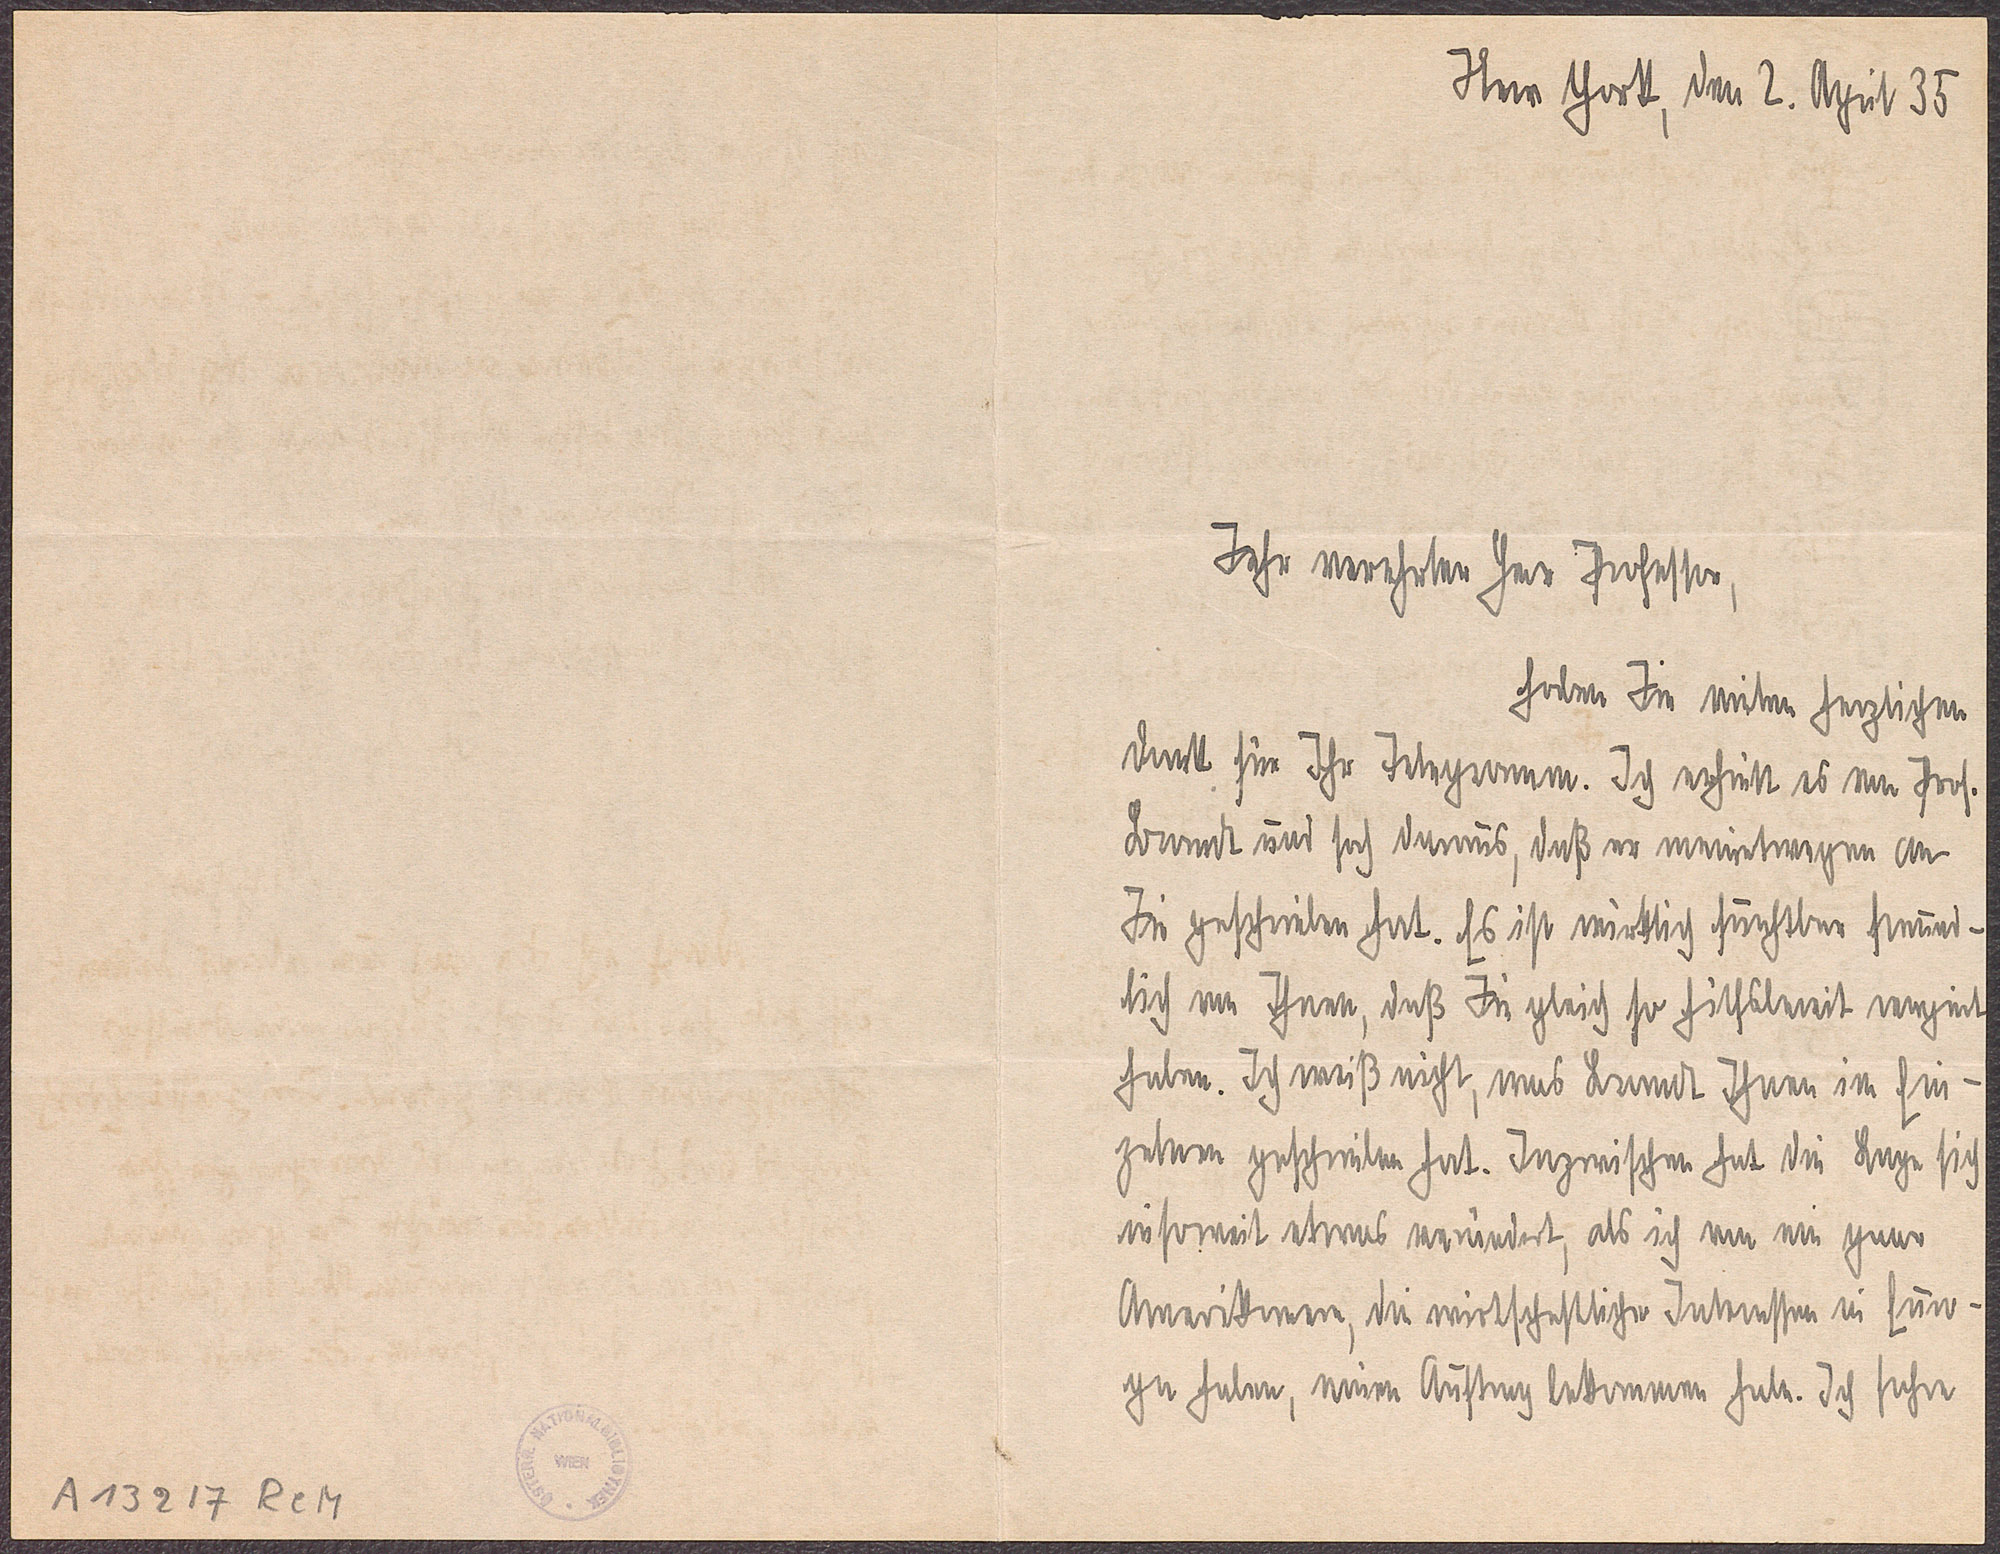 New York, den 2. April 35
Sehr verehrter Herr Professor,
haben Sie vielen herzlichen
Dank für Ihr Telegramm. Ich erhielt es von Prof.
Brandt und sah daraus, daß er meinetwegen an
Sie geschrieben hat. Es ist wirklich furchtbar freund-
lich von Ihnen, daß Sie gleich so hilfsbereit reagiert
haben. Ich weiß nicht, was Brandt Ihnen im Ein-
zelnen geschrieben hat. Inzwischen hat die Lage sich
insoweit etwas verändert, als ich von ein paar
Amerikanern, die wirtschaftliche Interessen in Euro-
pa haben, einen Auftrag bekommen habe. Ich fahre
A 13217 ReM
ÖSTERR. NATIONALBIBLIOTHEK
WIEN